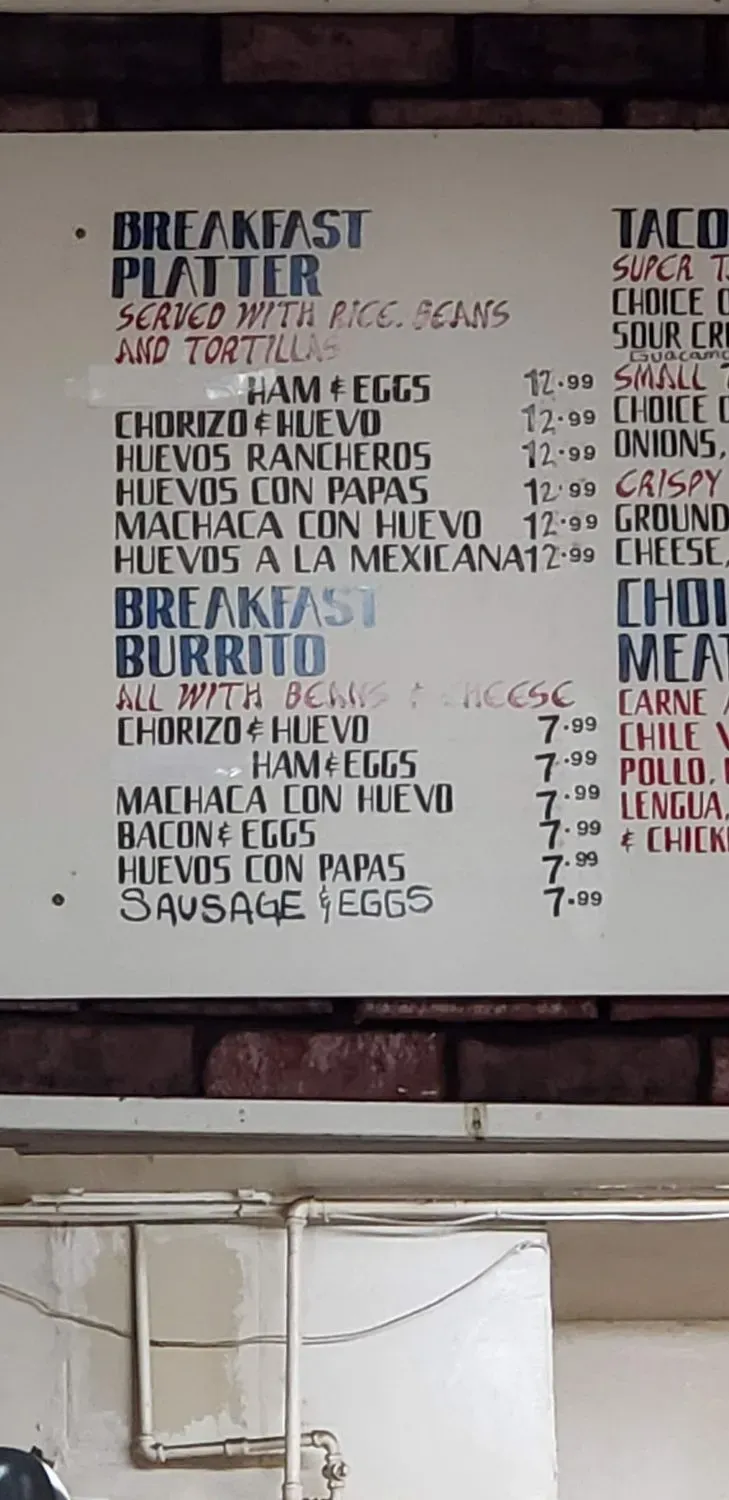 BREAKFAST
PLATTER
SERVED WITH RICE. BEANS
AND TORTILLAS
HAM & EGGS 12.99
CHORIZO & HUEVO 12.99
HUEVOS RANCHEROS 12.99
HUEVOS CON PAPAS 12.99
MACHACA CON HUEVO 12.99
HUEVOS A LA MEXICANA 12.99
BREAKFAST
BURRITO
ALL WITH BEANS & CHEESE
CHORIZO & HUEVO 7.99
HAM & EGGS 7.99
MACHACA CON HUEVO 7.99
BACON & EGGS 7.99
HUEVOS CON PAPAS 7.99
SAUSAGE & EGGS 7.99
TACO
SUPER
CHOICE
SOUR
SMALL
CHOICE
ONIONS,
CRISPY
GROUND
CHEESE,
CHOI
MEAT
CARNE
CHILE
POLLO,
LENGUA,
&